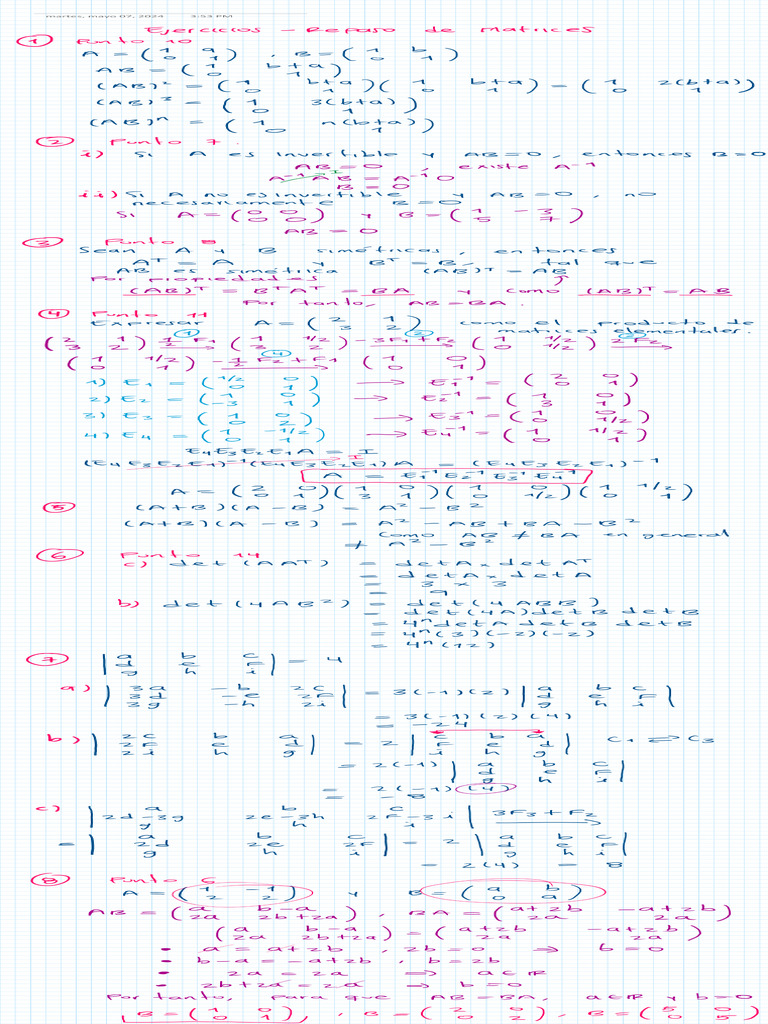 martes, mayo 07, 2024 3:53 PM
Ejercicios - Repaso de Matrices
① Punto 10
A = (1 a; 0 1) , B = (1 b; 0 1)
AB = (1 b+a; 0 1)
(AB)² = (1 b+a; 0 1)(1 b+a; 0 1) = (1 2(b+a); 0 1)
(AB)³ = (1 3(b+a); 0 1)
(AB)ⁿ = (1 n(b+a); 0 1)
② Punto 7.
i) Si A es invertible y AB=0, entonces B=0
AB = 0 , existe A⁻¹
A⁻¹AB = A⁻¹0
B = 0
ii) Si A no es invertible y AB=0, no
necesariamente B=0
Si A = (0 0; 0 0) y B = (1 -3; 5 7)
AB = 0
③ Punto 8
Sean A y B simétricas, entonces
Aᵀ = A y Bᵀ = B, tal que
AB es simétrica (AB)ᵀ = AB
Por propiedades
(AB)ᵀ = BᵀAᵀ = BA y como (AB)ᵀ = AB
Por tanto, AB = BA.
④ Punto 11
Expresar A = (2 1; 3 2) como el producto de
matrices elementales.
(2 1; 3 2) ½F₁ (1 1/2; 3 2) -3F₁+F₂ (1 1/2; 0 1/2) 2F₂
(1 1/2; 0 1) -½F₂+F₁ (1 0; 0 1)
1) E₁ = (1/2 0; 0 1) → E₁⁻¹ = (2 0; 0 1)
2) E₂ = (1 0; -3 1) → E₂⁻¹ = (1 0; 3 1)
3) E₃ = (1 0; 0 2) → E₃⁻¹ = (1 0; 0 1/2)
4) E₄ = (1 -1/2; 0 1) → E₄⁻¹ = (1 1/2; 0 1)
E₄E₃E₂E₁A = I
(E₄E₃E₂E₁)⁻¹(E₄E₃E₂E₁)A = (E₄E₃E₂E₁)⁻¹
A = E₁⁻¹ E₂⁻¹ E₃⁻¹ E₄⁻¹
A = (2 0; 0 1)(1 0; 3 1)(1 0; 0 1/2)(1 1/2; 0 1)
⑤ (A+B)(A-B) = A² - B²
(A+B)(A-B) = A² - AB + BA - B²
Como AB ≠ BA en general
≠ A² - B²
⑥ Punto 14
c) det(AAᵀ) = detA x detAᵀ
= detA x detA
= 3 x 3
= 9
b) det(4AB²) = det(4ABB)
= det(4A)detB detB
= 4ⁿ detA detB detB
= 4ⁿ(3)(-2)(-2)
= 4ⁿ(12)
⑦ |a b c; d e f; g h i| = 4
a) |3a -b 2c; 3d -e 2f; 3g -h 2i| = 3(-1)(2) |a b c; d e f; g h i|
= 3(-1)(2)(4)
= -24
b) |2c b a; 2f e d; 2i h g| = 2 |c b a; f e d; i h g| C₁ ⇌ C₃
= 2(-1) |a b c; d e f; g h i|
= 2(-1)(4)
= -8
c) |a b c; 2d-3g 2e-3h 2f-3i; g h i| 3F₃+F₂
= |a b c; 2d 2e 2f; g h i| = 2 |a b c; d e f; g h i|
= 2(4) = 8
⑧ Punto 6
A = (1 -1; 2 2) y B = (a b; 0 a)
AB = (a b-a; 2a 2b+2a) , BA = (a+2b -a+2b; 2a 2a)
(a b-a; 2a 2b+2a) = (a+2b -a+2b; 2a 2a)
• a = a+2b , 2b = 0 ⇒ b = 0
• b-a = -a+2b , b = 2b
• 2a = 2a ⇒ a∈ℝ
• 2b+2a = 2a ⇒ b = 0
Por tanto, para que AB = BA, a∈ℝ y b=0
B = (1 0; 0 1) , B = (2 0; 0 2) , B = (5 0; 0 5)